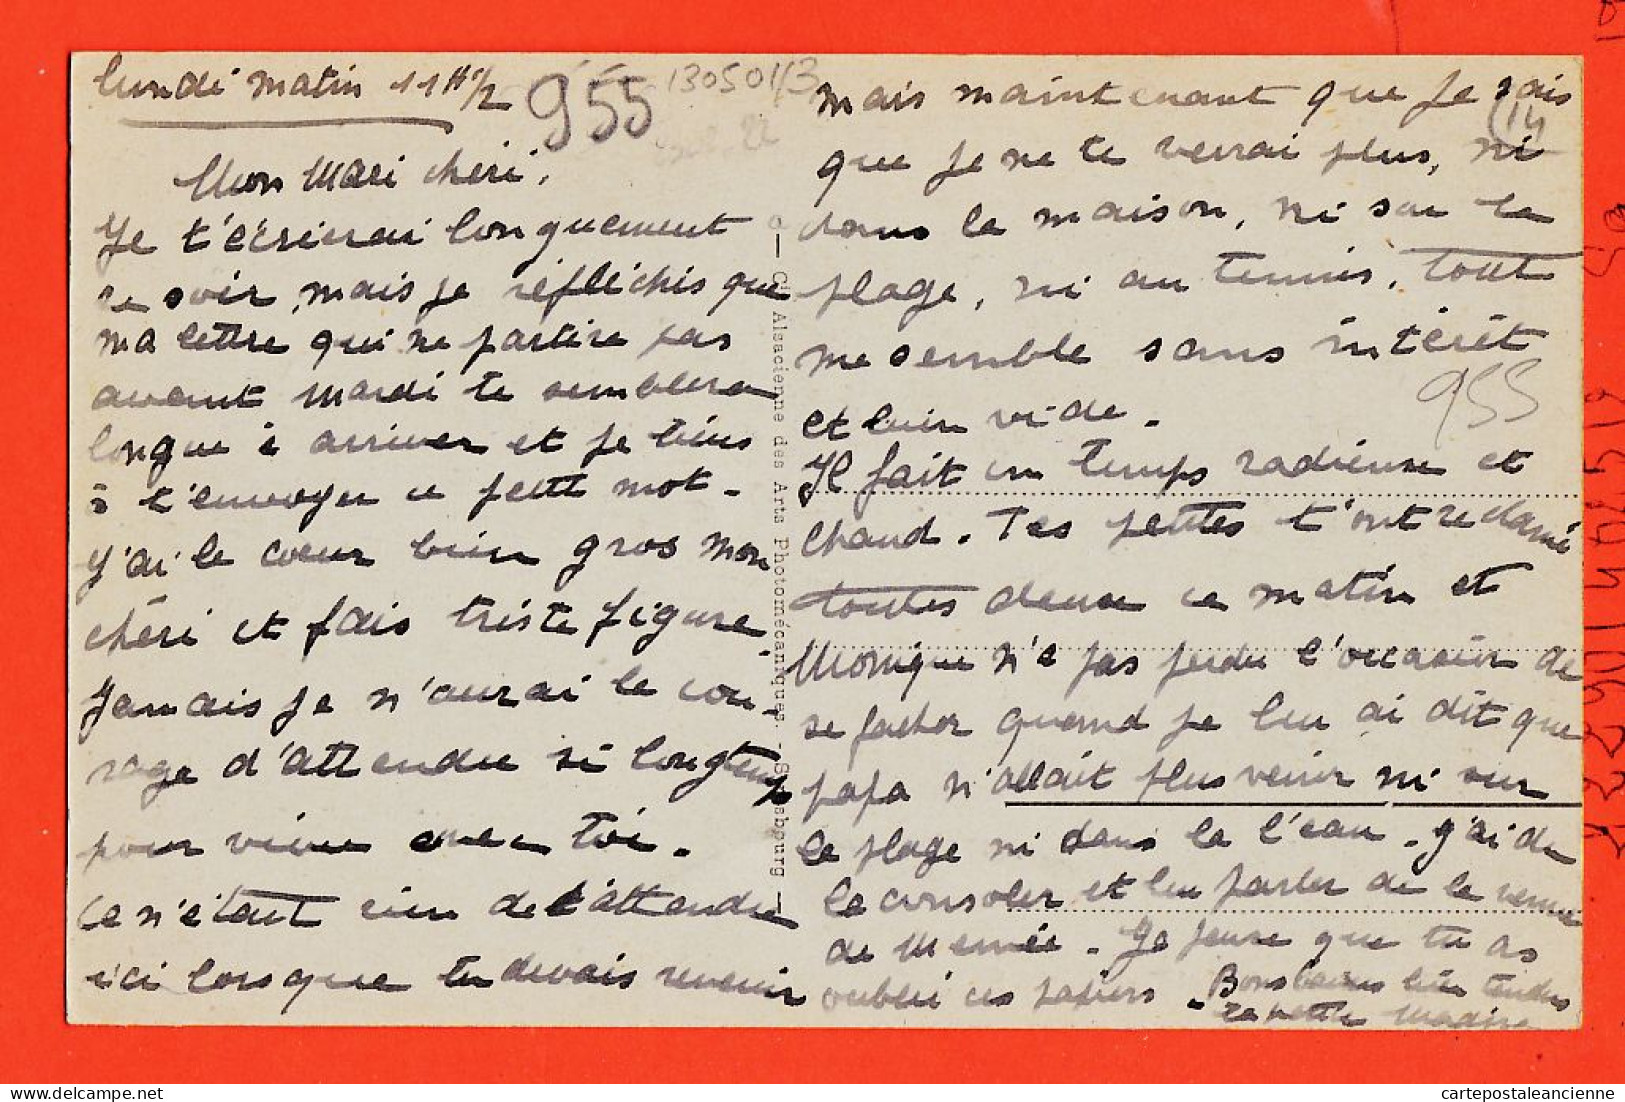 lundi matin 11H1/2
955
130501/3
(14
Mon Mari chéri,
Je t'écrierai longuement
ce soir, mais je réfléchis que
ma lettre qui ne partira pas
avant mardi te semblera
longue à arriver et je tiens
à t'envoyer ce petit mot -
J'ai le coeur bien gros mon
chéri et fais triste figure.
Jamais je n'aurai le cou-
rage d'attendre si longtemps
pour vivre avec toi.
Ce n'était rien de t'attendre
ici lorsque tu devais revenir
mais maintenant que je sais
que je ne te verrai plus, ni
dans la maison, ni sur la
plage, ni au tennis, tout
me semble sans intérêt
et bien vide.
955
Il fait un temps radieux et
chaud. Tes petites t'ont réclamé
toutes deux ce matin et
Monique n'a pas perdu l'occasion de
se facher quand je lui ai dit que
papa n'allait plus venir ni sur
la plage ni dans la l'eau. J'ai du
la consoler et lui parler de la venue
de Mémée. Je pense que tu as
oublié ces papiers - Bons baisers bien tendres
Cie Alsacienne des Arts Photomécaniques. - Strasbourg
delcampe.net
cartepostaleancienne